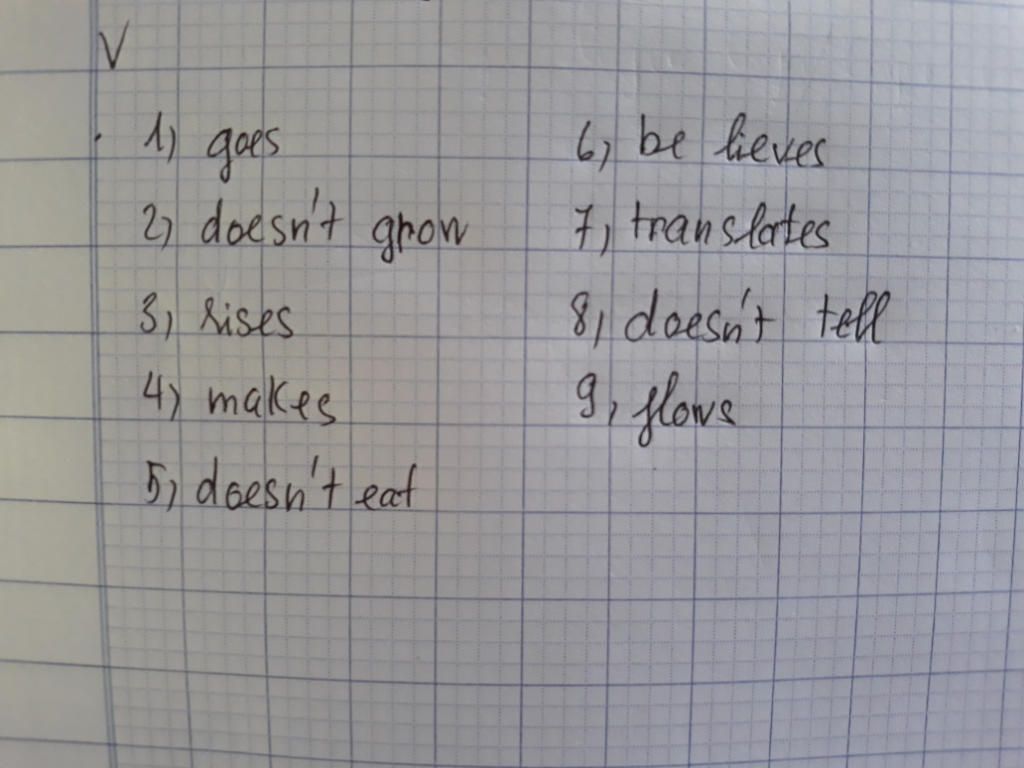 V
1) goes
2) doesn't grow
3) rises
4) makes
5) doesn't eat
6) be lieves
7) translates
8) doesn't tell
9) flows